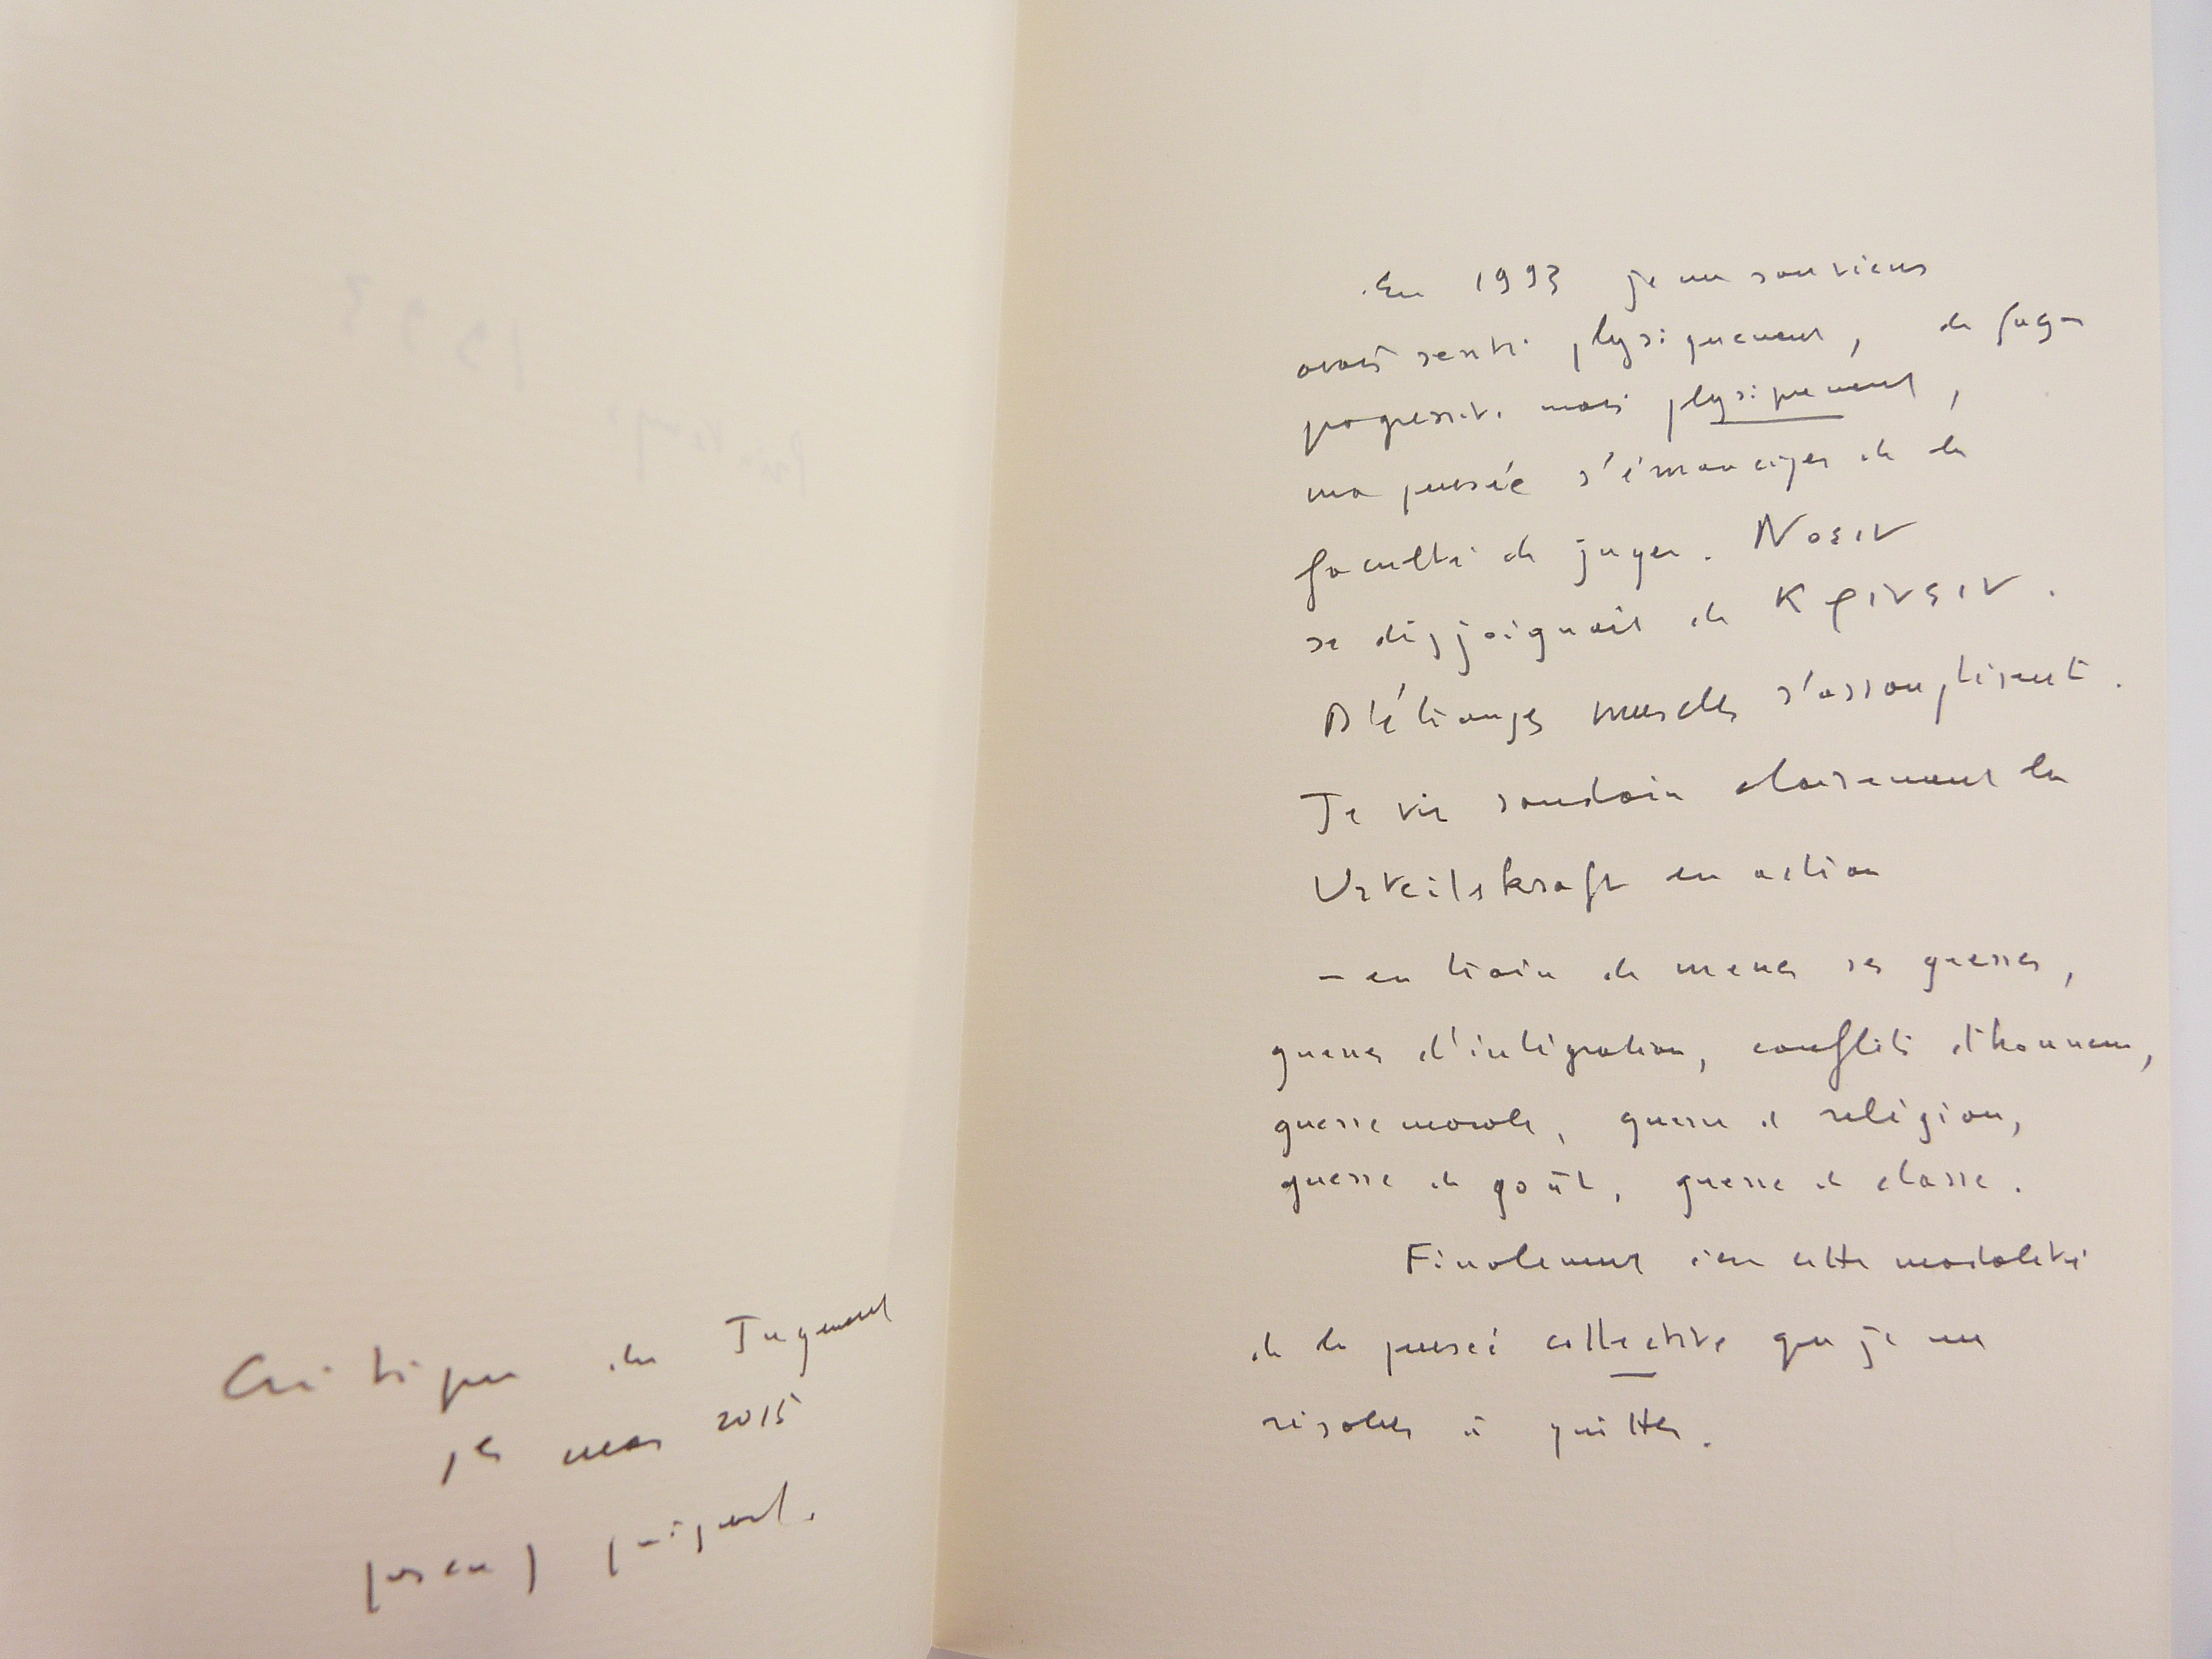 Critique du Jugement
1er mars 2015
pascal quignard.
En 1993 je me souviens
avoir senti physiquement, de façon
progressive mais physiquement,
ma pensée s'émanciper de la
faculté de juger. Noεiν
se disjoignait de Kρινειν.
D'étranges muscles s'assouplirent.
Je vis soudain clairement la
Urteilskraft en action
– en train de mener ses guerres,
guerres d'intégration, conflits d'honneur,
guerre morale, guerre de religion,
guerre de goût, guerre de classe.
Finalement c'est cette modalité
de la pensée collective que je me
résolus à quitter.